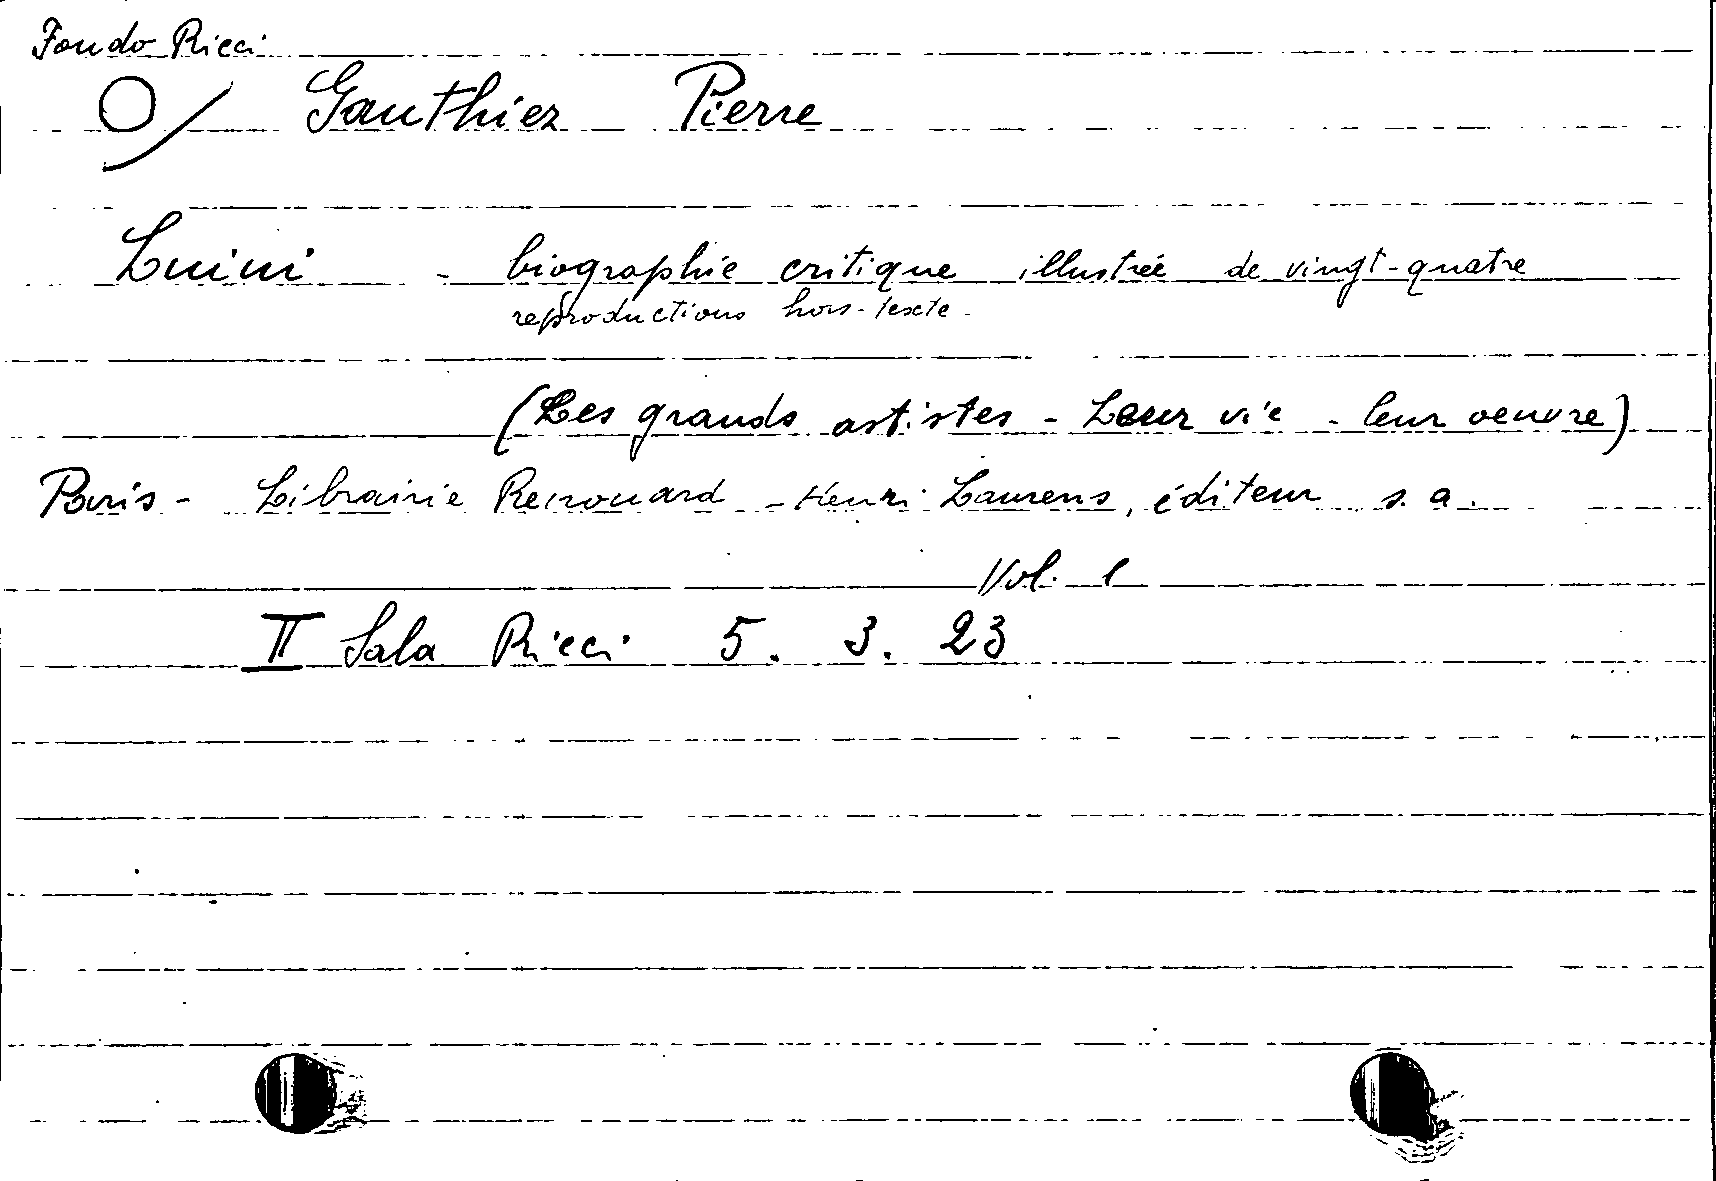 Fondo Ricci
Gauthiez Pierre
Luini - biographie critique illustrée de vingt-quatre
reproductions hors-texte.
(Les grands artistes - Leur vie - leur oeuvre)
Paris - Librairie Renouard - Henri Laurens, éditeur s. a.
Vol. 1
II Sala Ricci 5. 3. 23